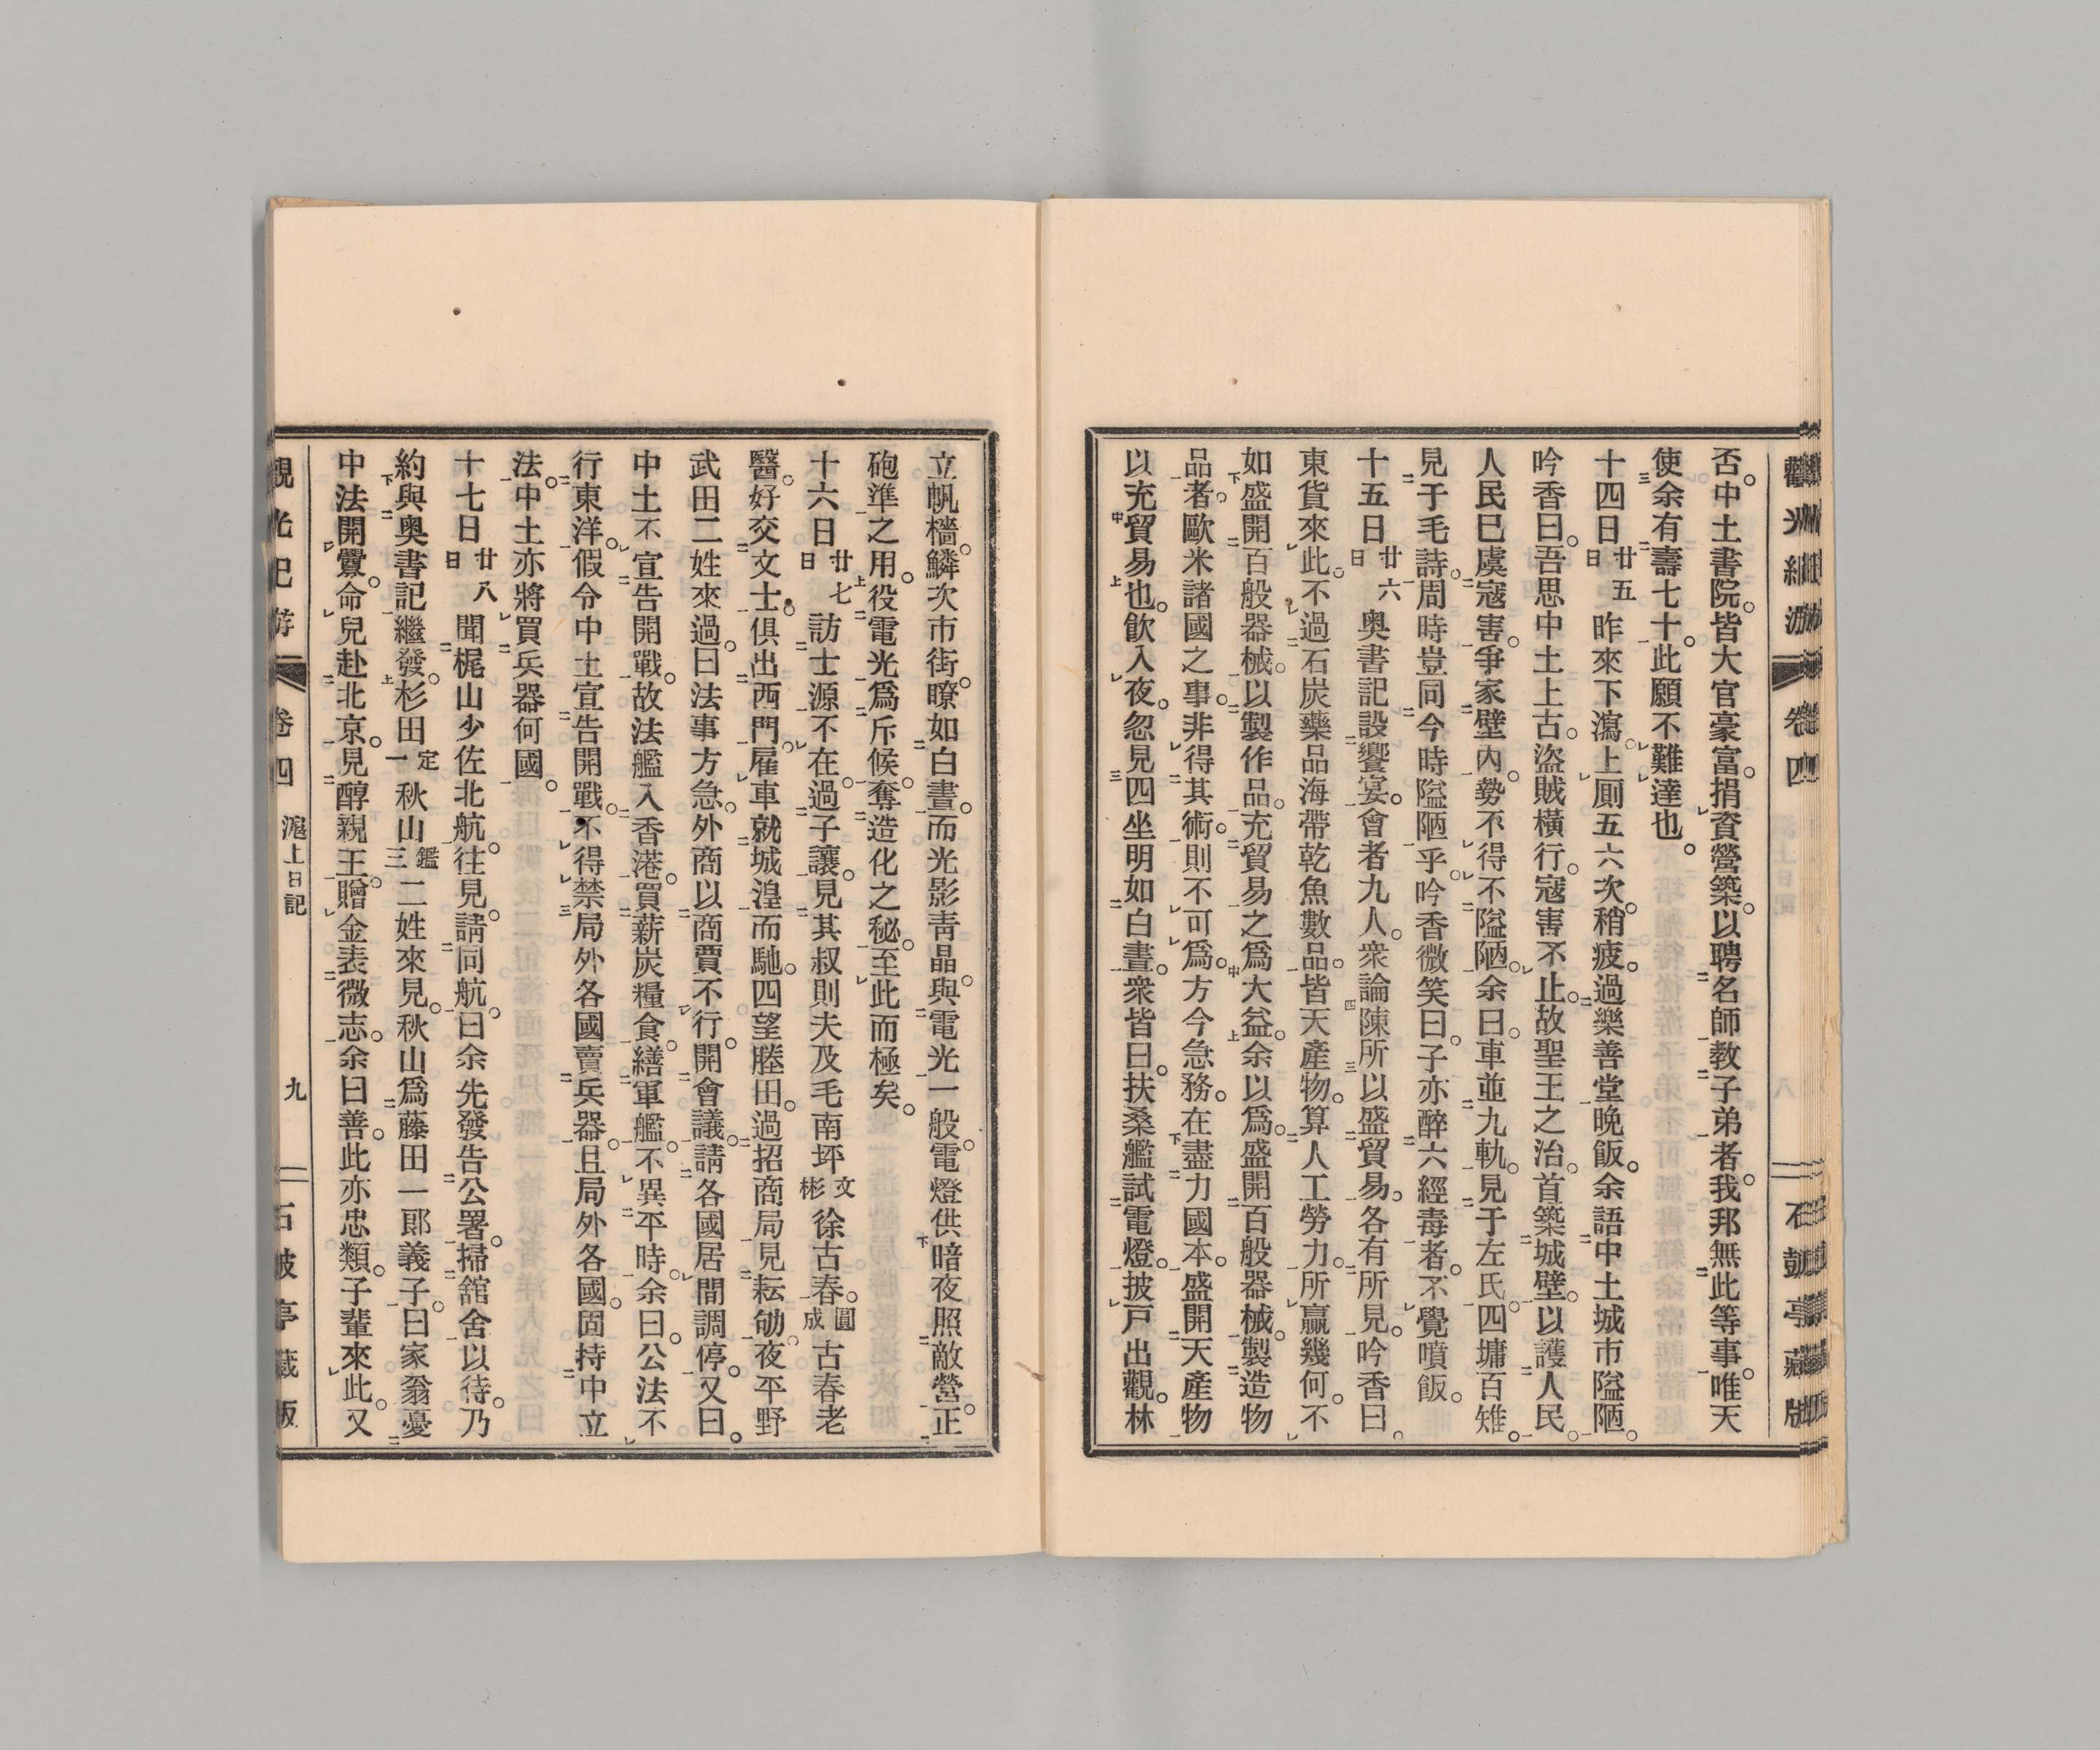 否。中土書院。皆大官豪富。捐資營築。以聘名師教子弟者。我邦無此等事。唯天
使余有壽七十。此願不難達也。
十四日廿五日昨來下瀉。上厠五六次。稍疲。過樂善堂晚飯。余語中土城市隘陋。
吟香曰。吾思中土上古。盜賊橫行。寇害不止。故聖王之治。首築城壁。以護人民。
人民已虞寇害。爭家壁內。勢不得不隘陋。余曰。車並九軌。見于左氏。四墉百雉。
見于毛詩。周時豈同今時隘陋乎。吟香微笑曰。子亦醉六經毒者。不覺噴飯。
十五日廿六日奧書記設饗宴。會者九人。衆論陳所以盛貿易。各有所見。吟香曰。
東貨來此。不過石炭藥品海帶乾魚數品。皆天產物。算人工勞力。所贏幾何。不
如盛開百般器械。以製作品。充貿易之爲大益。余以爲。盛開百般器械。製造物
品者。歐米諸國之事。非得其術。則不可爲。方今急務。在盡力國本。盛開天產物
以充貿易也。飲入夜。忽見四坐明如白晝。衆皆曰。扶桑艦試電燈。披戶出觀。林
立帆檣。鱗次市街。瞭如白晝。而光影靑晶。與電光一般。電燈供暗夜照敵營。正
砲準之用。役電光爲斥候。奪造化之秘。至此而極矣。
十六日廿七日訪士源不在。過子讓。見其叔則夫及毛南坪文彬徐古春。圓成古春老
醫。好交文士。俱出西門。雇車就城湟而馳。四望塍田。過招商局見耘劬。夜平野
武田二姓來過。曰法事方急。外商以商賈不行。開會議。請各國居間調停。又曰。
中土不宣告開戰。故法艦入香港。買薪炭糧食。繕軍艦。不異平時。余曰。公法不
行東洋。假令中土宣告開戰。不得禁局外各國賣兵器。且局外各國。固持中立
法。中土亦將買兵器何國。
十七日廿八日聞梶山少佐北航。往見。請同航。曰余先發告公署。掃舘舍以待。乃
約與奧書記繼發。杉田定一秋山鑑三二姓來見。秋山爲藤田一郎義子。曰家翁憂
中法開釁。命兒赴北京。見醇親王。贈金表微志。余曰善。此亦忠類。子輩來此。又
觀光紀游
卷四
滬上日記
九